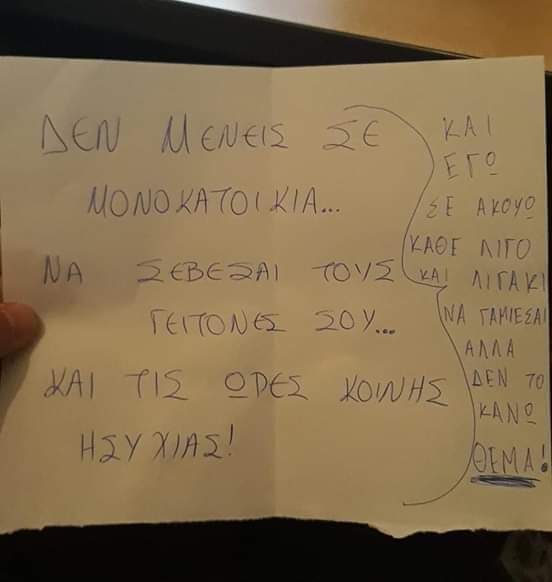 ΔΕΝ ΜΕΝΕΙΣ ΣΕ
ΜΟΝΟΚΑΤΟΙΚΙΑ...
ΝΑ ΣΕΒΕΣΑΙ ΤΟΥΣ
ΓΕΙΤΟΝΕΣ ΣΟΥ...
ΚΑΙ ΤΙΣ ΩΡΕΣ ΚΟΙΝΗΣ
ΗΣΥΧΙΑΣ!
ΚΑΙ
ΕΓΩ
ΣΕ ΑΚΟΥΩ
ΚΑΘΕ ΛΙΓΟ
ΚΑΙ ΛΙΓΑΚΙ
ΝΑ ΓΑΜΙΕΣΑΙ
ΑΛΛΑ
ΔΕΝ ΤΟ
ΚΑΝΩ
ΘΕΜΑ!